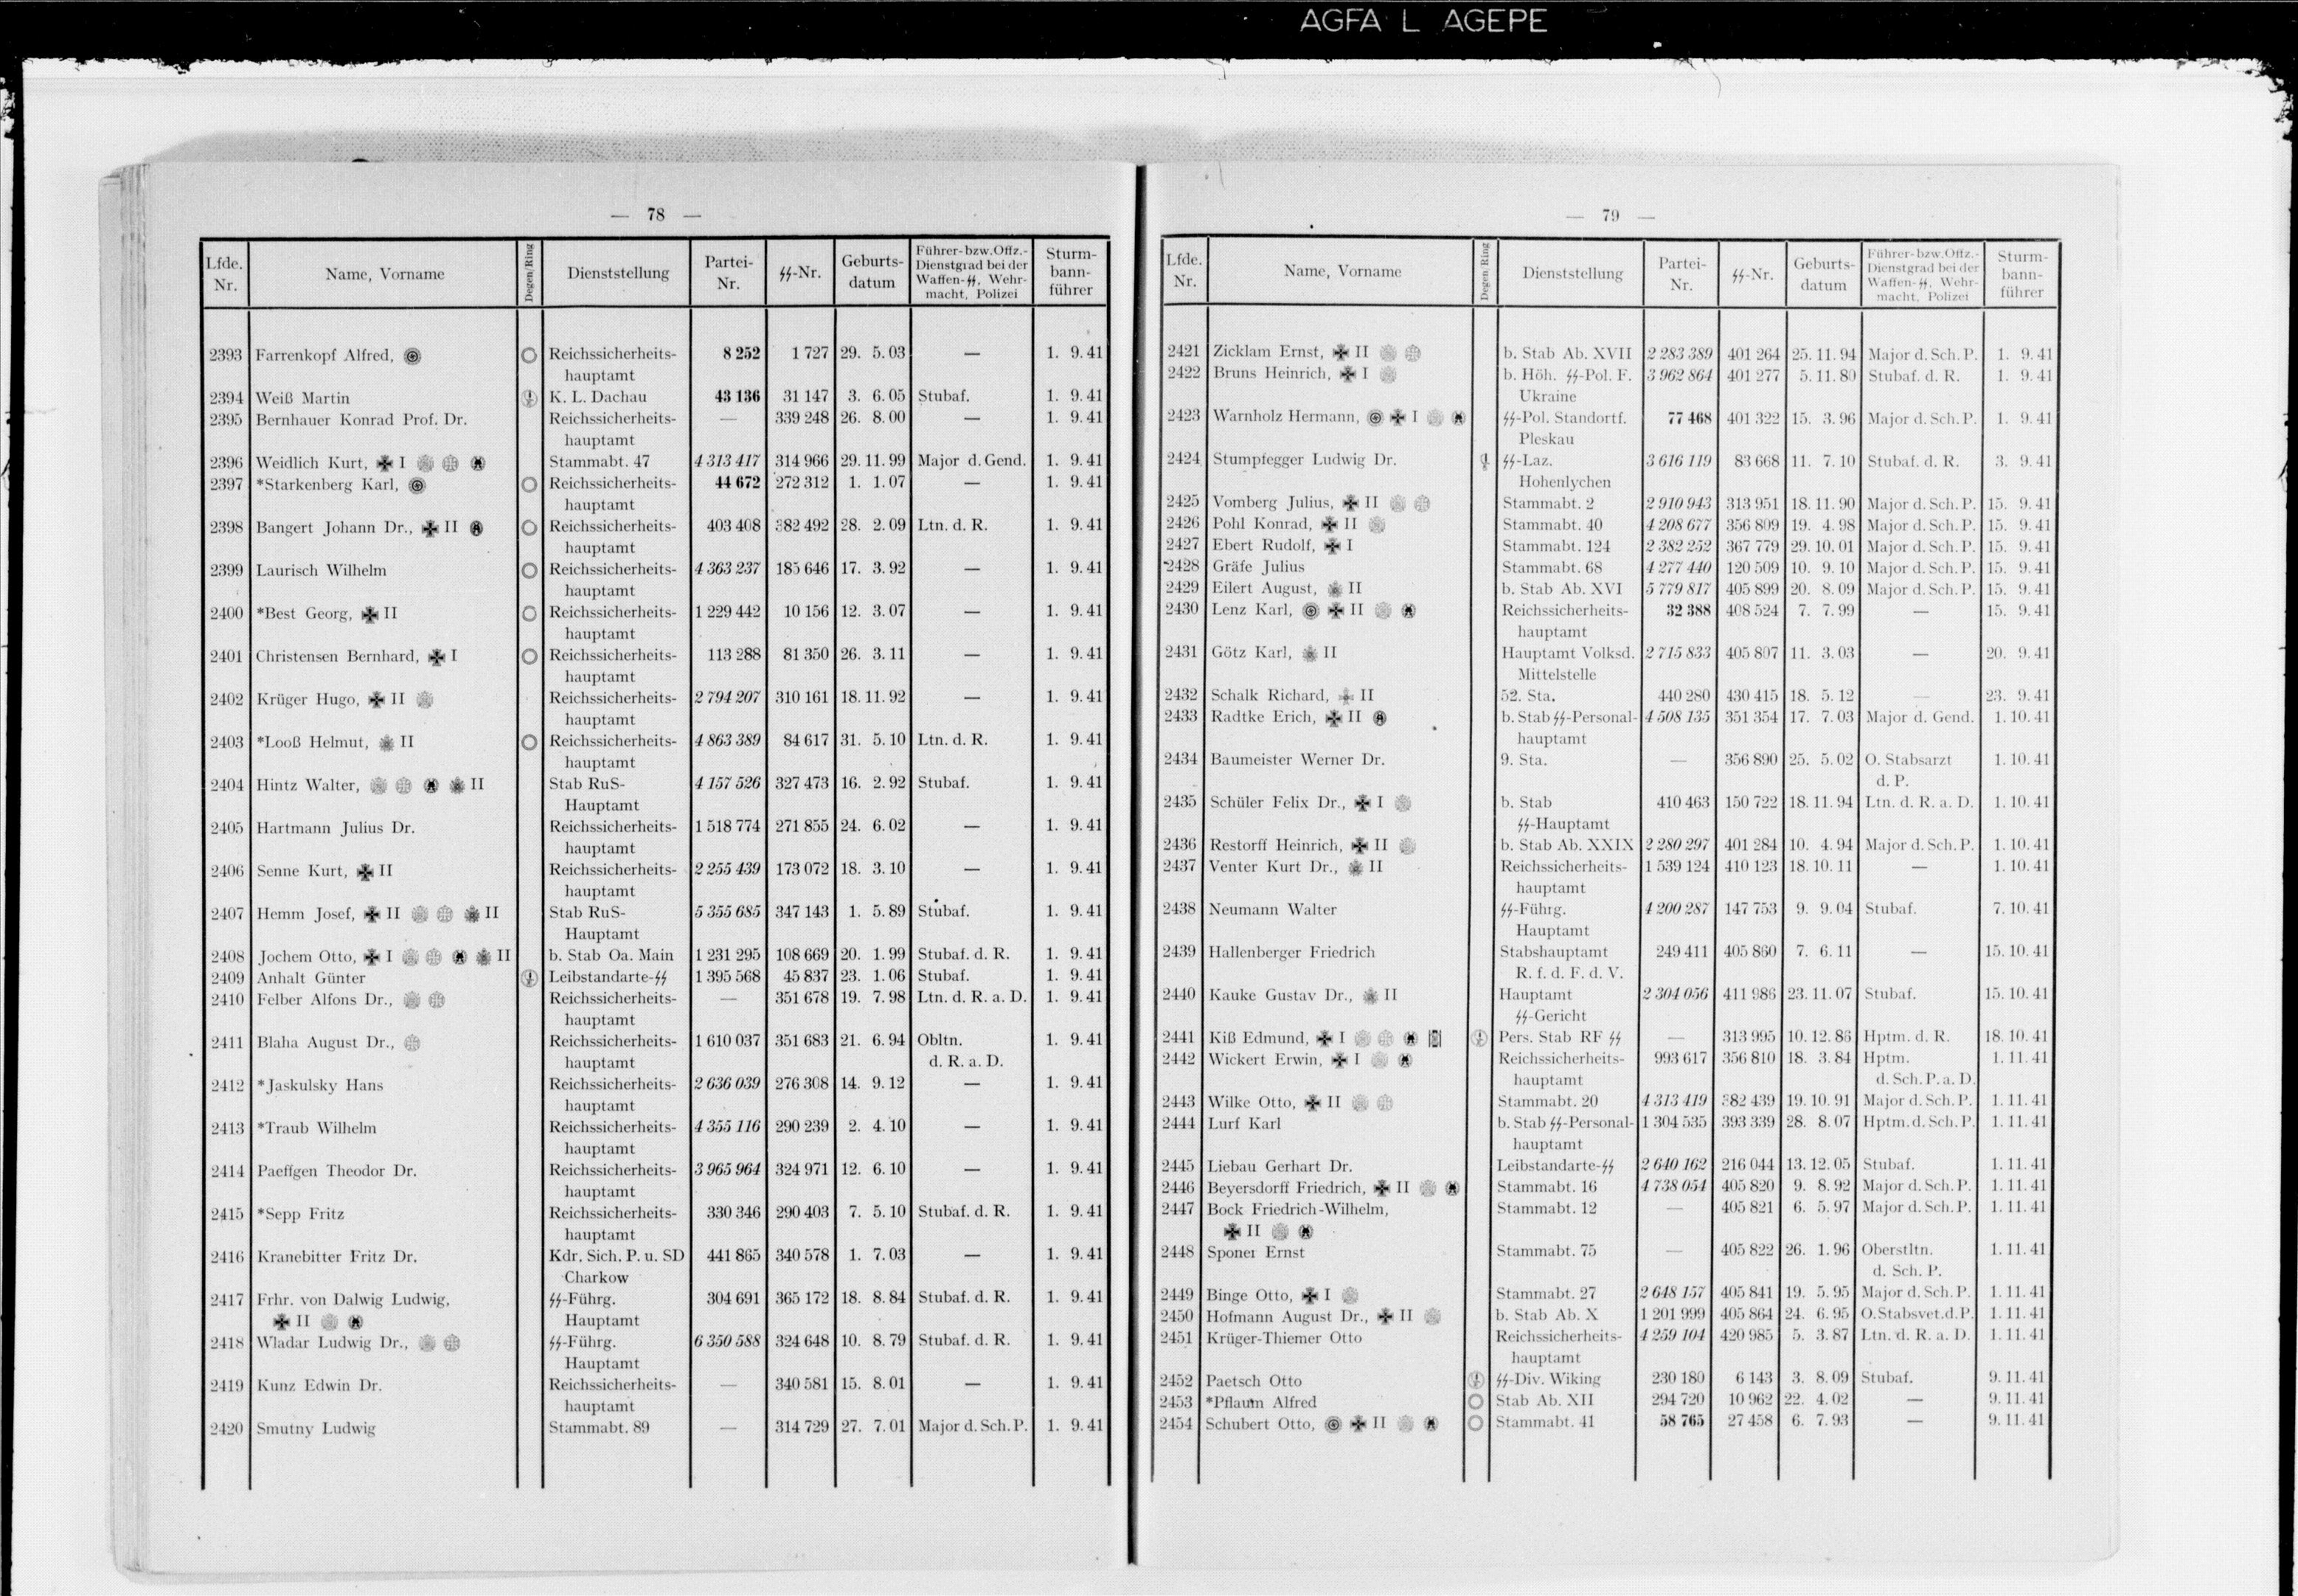 AGFA L AGEPE
— 78 —
Lfde. Nr. Name, Vorname Degen/Ring Dienststellung Partei-Nr. ᛋᛋ-Nr. Geburts-datum Führer- bzw. Offz.-Dienstgrad bei der Waffen-ᛋᛋ, Wehr-macht, Polizei Sturm-bann-führer
2393 Farrenkopf Alfred, Reichssicherheits- 8 252 1 727 29. 5. 03 — 1. 9. 41
hauptamt
2394 Weiß Martin K. L. Dachau 43 136 31 147 3. 6. 05 Stubaf. 1. 9. 41
2395 Bernhauer Konrad Prof. Dr. Reichssicherheits- — 339 248 26. 8. 00 — 1. 9. 41
hauptamt
2396 Weidlich Kurt, I Stammabt. 47 4 313 417 314 966 29. 11. 99 Major d. Gend. 1. 9. 41
2397 *Starkenberg Karl, Reichssicherheits- 44 672 272 312 1. 1. 07 — 1. 9. 41
hauptamt
2398 Bangert Johann Dr., II Reichssicherheits- 403 408 382 492 28. 2. 09 Ltn. d. R. 1. 9. 41
hauptamt
2399 Laurisch Wilhelm Reichssicherheits- 4 363 237 185 646 17. 3. 92 — 1. 9. 41
hauptamt
2400 *Best Georg, II Reichssicherheits- 1 229 442 10 156 12. 3. 07 — 1. 9. 41
hauptamt
2401 Christensen Bernhard, I Reichssicherheits- 113 288 81 350 26. 3. 11 — 1. 9. 41
hauptamt
2402 Krüger Hugo, II Reichssicherheits- 2 794 207 310 161 18. 11. 92 — 1. 9. 41
hauptamt
2403 *Looß Helmut, II Reichssicherheits- 4 863 389 84 617 31. 5. 10 Ltn. d. R. 1. 9. 41
hauptamt
2404 Hintz Walter, II Stab RuS- 4 157 526 327 473 16. 2. 92 Stubaf. 1. 9. 41
Hauptamt
2405 Hartmann Julius Dr. Reichssicherheits- 1 518 774 271 855 24. 6. 02 — 1. 9. 41
hauptamt
2406 Senne Kurt, II Reichssicherheits- 2 255 439 173 072 18. 3. 10 — 1. 9. 41
hauptamt
2407 Hemm Josef, II II Stab RuS- 5 355 685 347 143 1. 5. 89 Stubaf. 1. 9. 41
Hauptamt
2408 Jochem Otto, I II b. Stab Oa. Main 1 231 295 108 669 20. 1. 99 Stubaf. d. R. 1. 9. 41
2409 Anhalt Günter Leibstandarte-ᛋᛋ 1 395 568 45 837 23. 1. 06 Stubaf. 1. 9. 41
2410 Felber Alfons Dr., Reichssicherheits- — 351 678 19. 7. 98 Ltn. d. R. a. D. 1. 9. 41
hauptamt
2411 Blaha August Dr., Reichssicherheits- 1 610 037 351 683 21. 6. 94 Obltn. 1. 9. 41
hauptamt d. R. a. D.
2412 *Jaskulsky Hans Reichssicherheits- 2 636 039 276 308 14. 9. 12 — 1. 9. 41
hauptamt
2413 *Traub Wilhelm Reichssicherheits- 4 355 116 290 239 2. 4. 10 — 1. 9. 41
hauptamt
2414 Paeffgen Theodor Dr. Reichssicherheits- 3 965 964 324 971 12. 6. 10 — 1. 9. 41
hauptamt
2415 *Sepp Fritz Reichssicherheits- 330 346 290 403 7. 5. 10 Stubaf. d. R. 1. 9. 41
hauptamt
2416 Kranebitter Fritz Dr. Kdr. Sich. P. u. SD 441 865 340 578 1. 7. 03 — 1. 9. 41
Charkow
2417 Frhr. von Dalwig Ludwig, ᛋᛋ-Führg. 304 691 365 172 18. 8. 84 Stubaf. d. R. 1. 9. 41
II Hauptamt
2418 Wladar Ludwig Dr., ᛋᛋ-Führg. 6 350 588 324 648 10. 8. 79 Stubaf. d. R. 1. 9. 41
Hauptamt
2419 Kunz Edwin Dr. Reichssicherheits- — 340 581 15. 8. 01 — 1. 9. 41
hauptamt
2420 Smutny Ludwig Stammabt. 89 — 314 729 27. 7. 01 Major d. Sch. P. 1. 9. 41
— 79 —
Lfde. Nr. Name, Vorname Degen/Ring Dienststellung Partei-Nr. ᛋᛋ-Nr. Geburts-datum Führer- bzw. Offz.-Dienstgrad bei der Waffen-ᛋᛋ, Wehr-macht, Polizei Sturm-bann-führer
2421 Zicklam Ernst, II b. Stab Ab. XVII 2 283 389 401 264 25. 11. 94 Major d. Sch. P. 1. 9. 41
2422 Bruns Heinrich, I b. Höh. ᛋᛋ-Pol. F. 3 962 864 401 277 5. 11. 80 Stubaf. d. R. 1. 9. 41
Ukraine
2423 Warnholz Hermann, I ᛋᛋ-Pol. Standortf. 77 468 401 322 15. 3. 96 Major d. Sch. P. 1. 9. 41
Pleskau
2424 Stumpfegger Ludwig Dr. ᛋᛋ-Laz. 3 616 119 83 668 11. 7. 10 Stubaf. d. R. 3. 9. 41
Hohenlychen
2425 Vomberg Julius, II Stammabt. 2 2 910 943 313 951 18. 11. 90 Major d. Sch. P. 15. 9. 41
2426 Pohl Konrad, II Stammabt. 40 4 208 677 356 809 19. 4. 98 Major d. Sch. P. 15. 9. 41
2427 Ebert Rudolf, I Stammabt. 124 2 382 252 367 779 29. 10. 01 Major d. Sch. P. 15. 9. 41
2428 Gräfe Julius Stammabt. 68 4 277 440 120 509 10. 9. 10 Major d. Sch. P. 15. 9. 41
2429 Eilert August, II b. Stab Ab. XVI 5 779 817 405 899 20. 8. 09 Major d. Sch. P. 15. 9. 41
2430 Lenz Karl, II Reichssicherheits- 32 388 408 524 7. 7. 99 — 15. 9. 41
hauptamt
2431 Götz Karl, II Hauptamt Volksd. 2 715 833 405 807 11. 3. 03 — 20. 9. 41
Mittelstelle
2432 Schalk Richard, II 52. Sta. 440 280 430 415 18. 5. 12 — 23. 9. 41
2433 Radtke Erich, II b. Stab ᛋᛋ-Personal- 4 508 135 351 354 17. 7. 03 Major d. Gend. 1. 10. 41
hauptamt
2434 Baumeister Werner Dr. 9. Sta. — 356 890 25. 5. 02 O. Stabsarzt 1. 10. 41
d. P.
2435 Schüler Felix Dr., I b. Stab 410 463 150 722 18. 11. 94 Ltn. d. R. a. D. 1. 10. 41
ᛋᛋ-Hauptamt
2436 Restorff Heinrich, II b. Stab Ab. XXIX 2 280 297 401 284 10. 4. 94 Major d. Sch. P. 1. 10. 41
2437 Venter Kurt Dr., II Reichssicherheits- 1 539 124 410 123 18. 10. 11 — 1. 10. 41
hauptamt
2438 Neumann Walter ᛋᛋ-Führg. 4 200 287 147 753 9. 9. 04 Stubaf. 7. 10. 41
Hauptamt
2439 Hallenberger Friedrich Stabshauptamt 249 411 405 860 7. 6. 11 — 15. 10. 41
R. f. d. F. d. V.
2440 Kauke Gustav Dr., II Hauptamt 2 304 056 411 986 23. 11. 07 Stubaf. 15. 10. 41
ᛋᛋ-Gericht
2441 Kiß Edmund, I Pers. Stab RF ᛋᛋ — 313 995 10. 12. 86 Hptm. d. R. 18. 10. 41
2442 Wickert Erwin, I Reichssicherheits- 993 617 356 810 18. 3. 84 Hptm. 1. 11. 41
hauptamt d. Sch. P. a. D.
2443 Wilke Otto, II Stammabt. 20 4 313 419 382 439 19. 10. 91 Major d. Sch. P. 1. 11. 41
2444 Lurf Karl b. Stab ᛋᛋ-Personal- 1 304 535 393 339 28. 8. 07 Hptm. d. Sch. P. 1. 11. 41
hauptamt
2445 Liebau Gerhart Dr. Leibstandarte-ᛋᛋ 2 640 162 216 044 13. 12. 05 Stubaf. 1. 11. 41
2446 Beyersdorff Friedrich, II Stammabt. 16 4 738 054 405 820 9. 8. 92 Major d. Sch. P. 1. 11. 41
2447 Bock Friedrich-Wilhelm, Stammabt. 12 — 405 821 6. 5. 97 Major d. Sch. P. 1. 11. 41
II
2448 Sponer Ernst Stammabt. 75 — 405 822 26. 1. 96 Oberstltn. 1. 11. 41
d. Sch. P.
2449 Binge Otto, I Stammabt. 27 2 648 157 405 841 19. 5. 95 Major d. Sch. P. 1. 11. 41
2450 Hofmann August Dr., II b. Stab Ab. X 1 201 999 405 864 24. 6. 95 O.Stabsvet.d.P. 1. 11. 41
2451 Krüger-Thiemer Otto Reichssicherheits- 4 259 104 420 985 5. 3. 87 Ltn. d. R. a. D. 1. 11. 41
hauptamt
2452 Paetsch Otto ᛋᛋ-Div. Wiking 230 180 6 143 3. 8. 09 Stubaf. 9. 11. 41
2453 *Pflaum Alfred Stab Ab. XII 294 720 10 962 22. 4. 02 — 9. 11. 41
2454 Schubert Otto, II Stammabt. 41 58 765 27 458 6. 7. 93 — 9. 11. 41